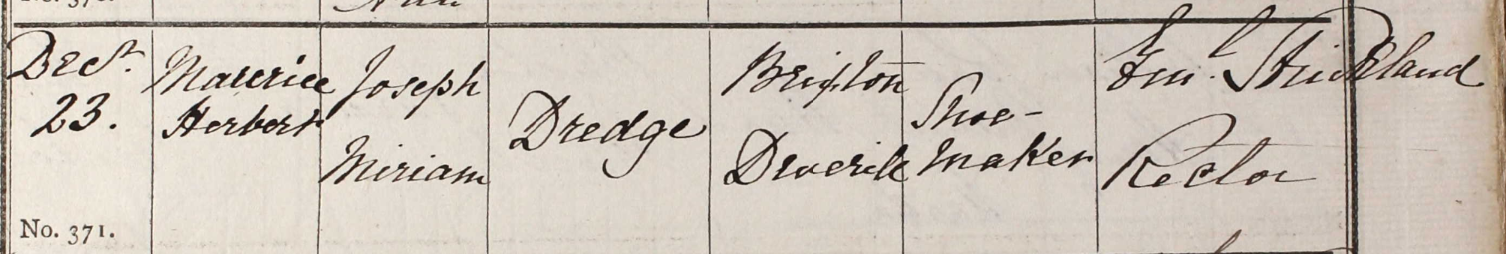 Decr.
23.
Maurice
Herbert
Joseph
Miriam
Dredge
Brixton
Deverill
Shoe-
maker
Strickland
Rector
No. 371.